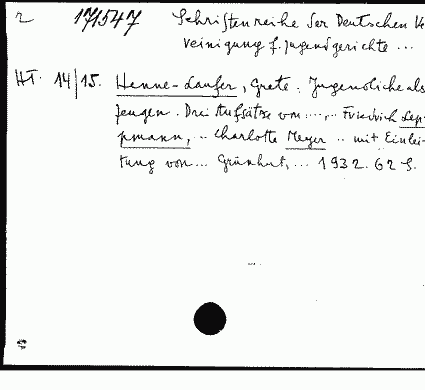 2 171547 Schriftenreihe der Deutschen Ve
reinigung f. Jugendgerichte ...
HI. 14/15. Henne-Laufer, Grete. Jugendliche als
Zeugen. Drei Aufsätze von ...,.. Friedrich Lep-
pmann, .. Charlotte Meyer .. mit Einlei-
tung von ... Grünhut, ... 1932. 62 S.